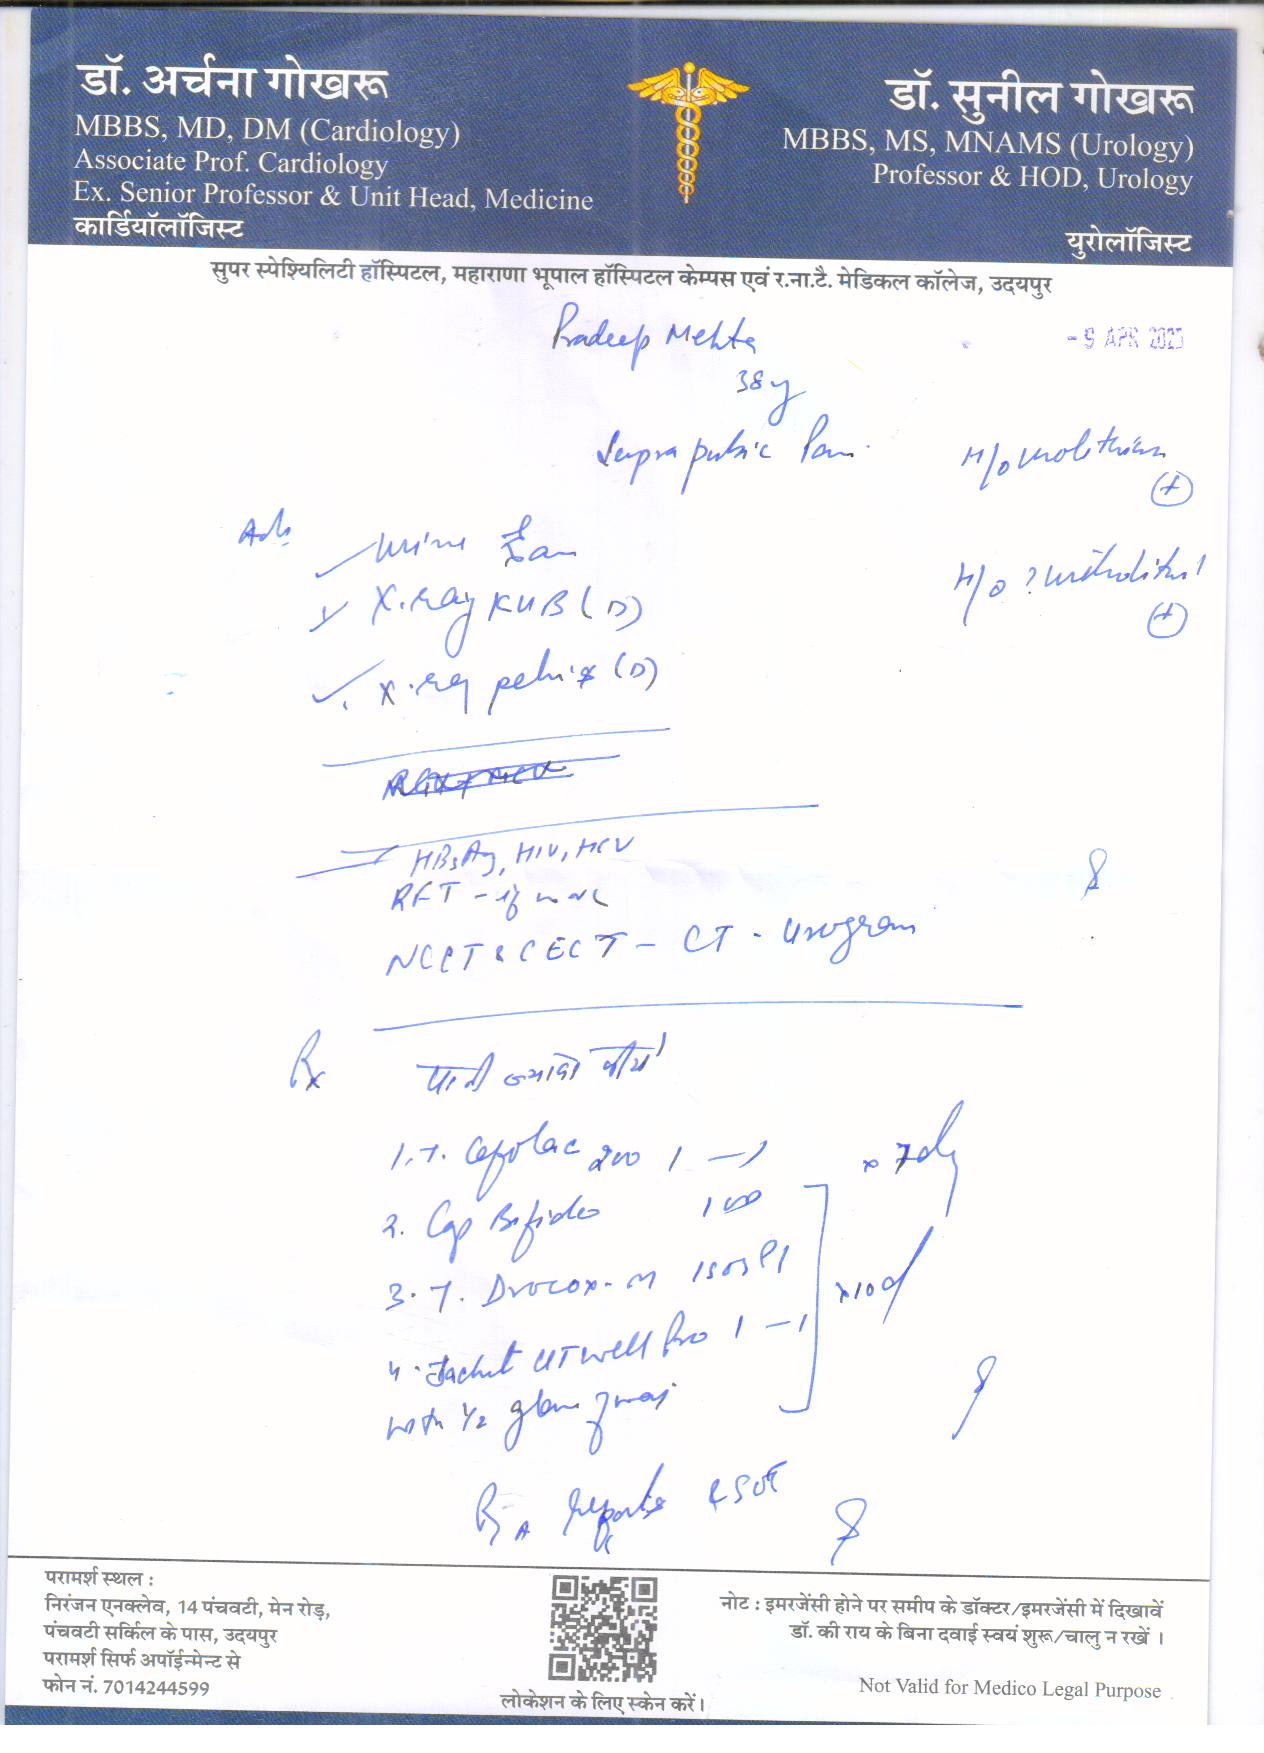 डॉ. अर्चना गोखरू
MBBS, MD, DM (Cardiology)
Associate Prof. Cardiology
Ex. Senior Professor & Unit Head, Medicine
कार्डियॉलॉजिस्ट
डॉ. सुनील गोखरू
MBBS, MS, MNAMS (Urology)
Professor & HOD, Urology
युरोलॉजिस्ट
सुपर स्पेश्यिलिटी हॉस्पिटल, महाराणा भूपाल हॉस्पिटल केम्पस एवं र.ना.टै. मेडिकल कॉलेज, उदयपुर
Pradeep Mehta
- 9 APR 2025
38y
Suprapubic Pain
H/o urolithiasis
(+)
Adv
Urine Exam
H/o ?
(+)
X-ray KUB (D)
X-ray pelvis (D)
HBsAg, HIV, HCV
RFT - if
NCCT & CECT - CT - Urogram
Rx
पानी ज्यादा पीये
1. T. Cefolac 200 1 - 1 x 7d
2. Cap Bifido 1 OD
3. T. Drocox-M 1 SOS
x 10d
4. Sachet UTwell Pro 1 - 1
with 1/2 glass of
R A reports & SOS
परामर्श स्थल :
निरंजन एनक्लेव, 14 पंचवटी, मेन रोड़,
पंचवटी सर्किल के पास, उदयपुर
परामर्श सिर्फ अपॉईन्मेन्ट से
फोन नं. 7014244599
लोकेशन के लिए स्केन करें।
नोट : इमरजेंसी होने पर समीप के डॉक्टर/इमरजेंसी में दिखावें
डॉ. की राय के बिना दवाई स्वयं शुरू/चालु न रखें ।
Not Valid for Medico Legal Purpose